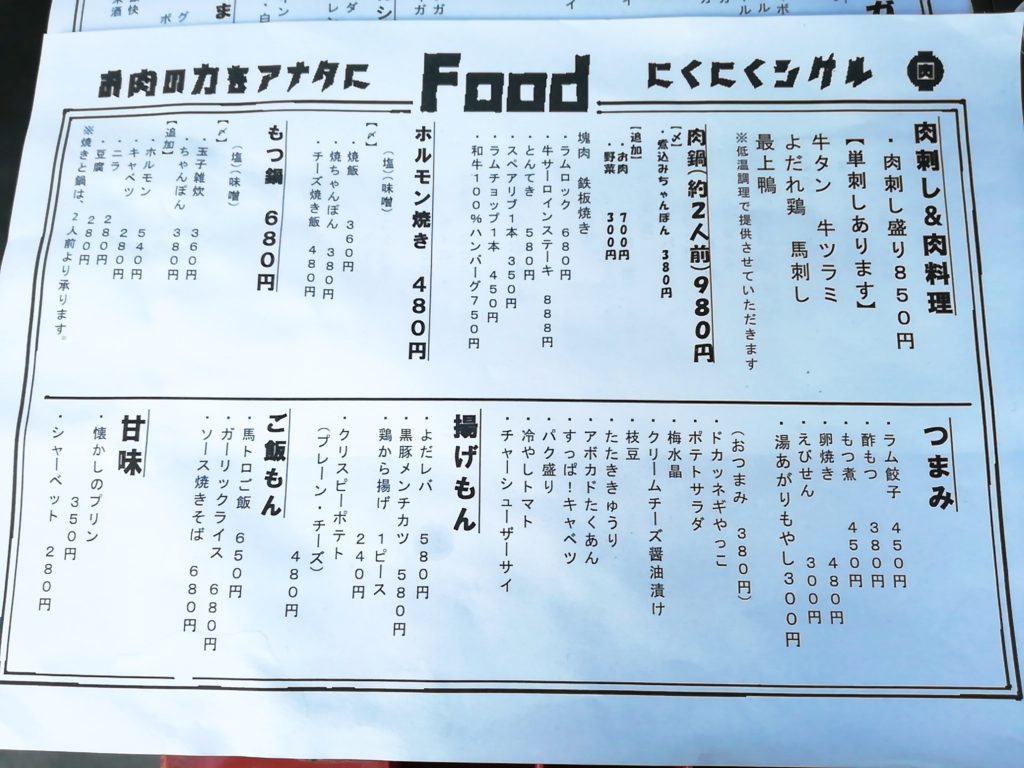 にくにくシグル
肉
Food
お肉の力をアナタに
肉刺し&肉料理
・肉刺し盛り850円
【単刺しあります】
牛タン 牛ツラミ
よだれ鶏 馬刺し
最上鴨
※低温調理で提供させていただきます
肉鍋(約2人前)980円
【〆】
・煮込みちゃんぽん 380円
【追加】
・お肉 700円
・野菜 300円
塊肉 鉄板焼き
・ラムロック 680円
・牛サーロインステーキ 888円
・とんてき 580円
・スペアリブ1本 350円
・ラムチョップ1本 450円
・和牛100%ハンバーグ750円
ホルモン焼き 480円
(塩)(味噌)
【〆】
・焼飯 360円
・焼ちゃんぽん 380円
・チーズ焼き飯 480円
もつ鍋 680円
(塩)(味噌)
【〆】
・玉子雑炊 360円
・ちゃんぽん 380円
【追加】
・ホルモン 540円
・キャベツ 280円
・ニラ 280円
・豆腐 280円
※焼きと鍋は、2人前より承ります。
つまみ
・ラム餃子 450円
・酢もつ 380円
・もつ煮 450円
・卵焼き 480円
・えびせん 300円
・湯あがりもやし300円
(おつまみ 380円)
・ドカッネギやっこ
・ポテトサラダ
・梅水晶
・クリームチーズ醤油漬け
・枝豆
・たたききゅうり
・アボカドたくあん
・すっぱ!キャベツ
・パク盛り
・冷やしトマト
・チャーシューザーサイ
揚げもん
・よだレバ 580円
・黒豚メンチカツ 580円
・鶏から揚げ 1ピース
240円
・クリスピーポテト
(プレーン・チーズ)
480円
ご飯もん
・馬トロご飯 650円
・ガーリックライス 680円
・ソース焼きそば 680円
甘味
・懐かしのプリン
350円
・シャーベット 280円